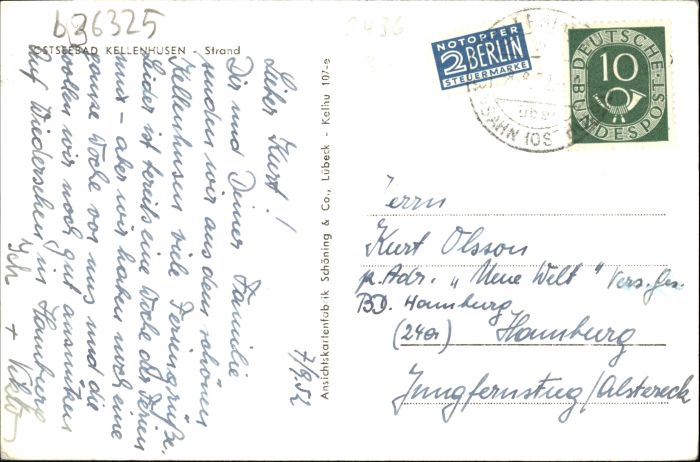 b36325
OSTSEEBAD KELLENHUSEN - Strand
7/9.52
Lieber Kurt!
Dir und Deiner Familie
senden wir aus dem schönen
Kellenhusen viele Feriengrüße.
Leider ist bereits eine Woche der Ferien
um - aber wir haben noch eine
ganze Woche vor uns und die
wollen wir noch gut ausnützen
Auf Wiedersehen in Hamburg
Ich + Viktor
Ansichtskartenfabrik Schöning & Co., Lübeck - Kelhu 107-e
NOTOPFER
2 BERLIN
STEUERMARKE
DEUTSCHE
10
BUNDESPOST
Herrn
Kurt Olsson
p. Adr. „Neue Welt" Vers. Ges.
BD. Hamburg
(24a) Hamburg
Jungfernstieg/Alstereck